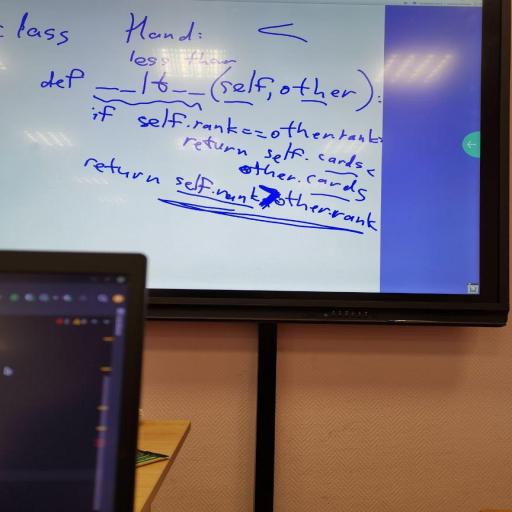 class Hand: <
less than
def __lt__(self, other):
if self.rank==other.rank:
return self.cards<
other.cards
return self.rank>other.rank